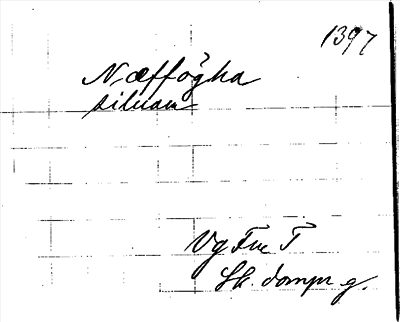 1397
Næffögha
siluan
Vg Fve T
Sk. dompr g.